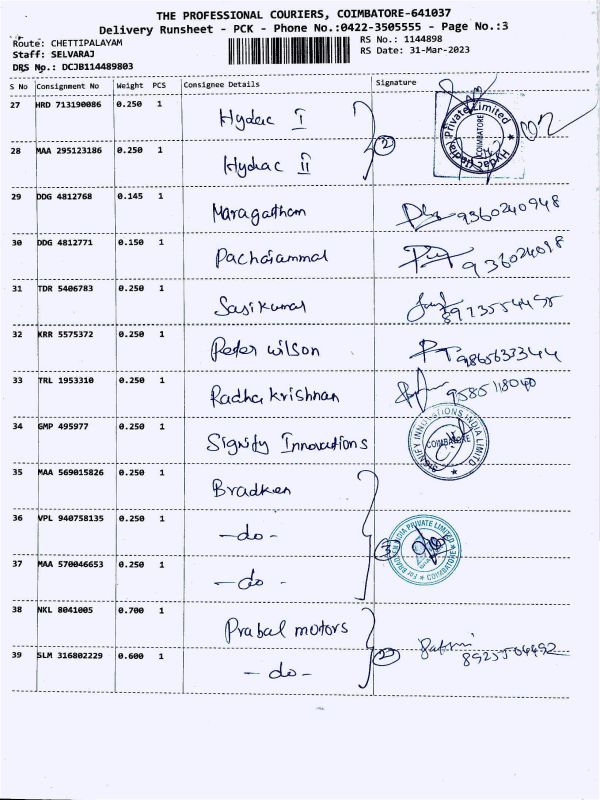 THE PROFESSIONAL COURIERS, COIMBATORE-641037
Delivery Runsheet - PCK - Phone No.:0422-3505555 - Page No.:3
Route: CHETTIPALAYAM
RS No.: 1144898
Staff: SELVARAJ
RS Date: 31-Mar-2023
DRS No.: DCJB114489803
S No Consignment No Weight PCS Consignee Details Signature
27 HRD 713190086 0.250 1 Hydac I
28 MAA 295123186 0.250 1 Hydac II
2
Hydac (India) Private Limited
COIMBATORE
29 DDG 4812768 0.145 1 Maragatham 9360240948
30 DDG 4812771 0.150 1 Pachaiammal
31 TDR 5406783 0.250 1 Sasikumar
32 KRR 5575372 0.250 1 Peter wilson 9865633344
33 TRL 1953310 0.250 1 Radha krishnan 9585118040
34 GMP 495977 0.250 1 Signify Innovations
SIGNIFY INNOVATIONS INDIA LIMITED
COIMBATORE
35 MAA 569015826 0.250 1 Bradken
36 VPL 940758135 0.250 1 -do-
3
For BRADKEN INDIA PRIVATE LIMITED
COIMBATORE
37 MAA 570046653 0.250 1 -do-
38 NKL 8041005 0.700 1 Prabal motors
2
39 SLM 316802229 0.600 1 -do-